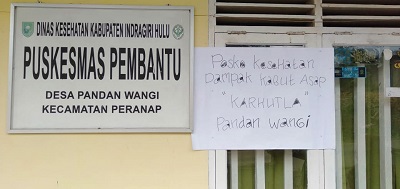 DINAS KESEHATAN KABUPATEN INDRAGIRI HULU
PUSKESMAS PEMBANTU
DESA PANDAN WANGI
KECAMATAN PERANAP
Posko Kesehatan
Dampak Kabut Asap
"KARHUTLA"
Pandan Wangi